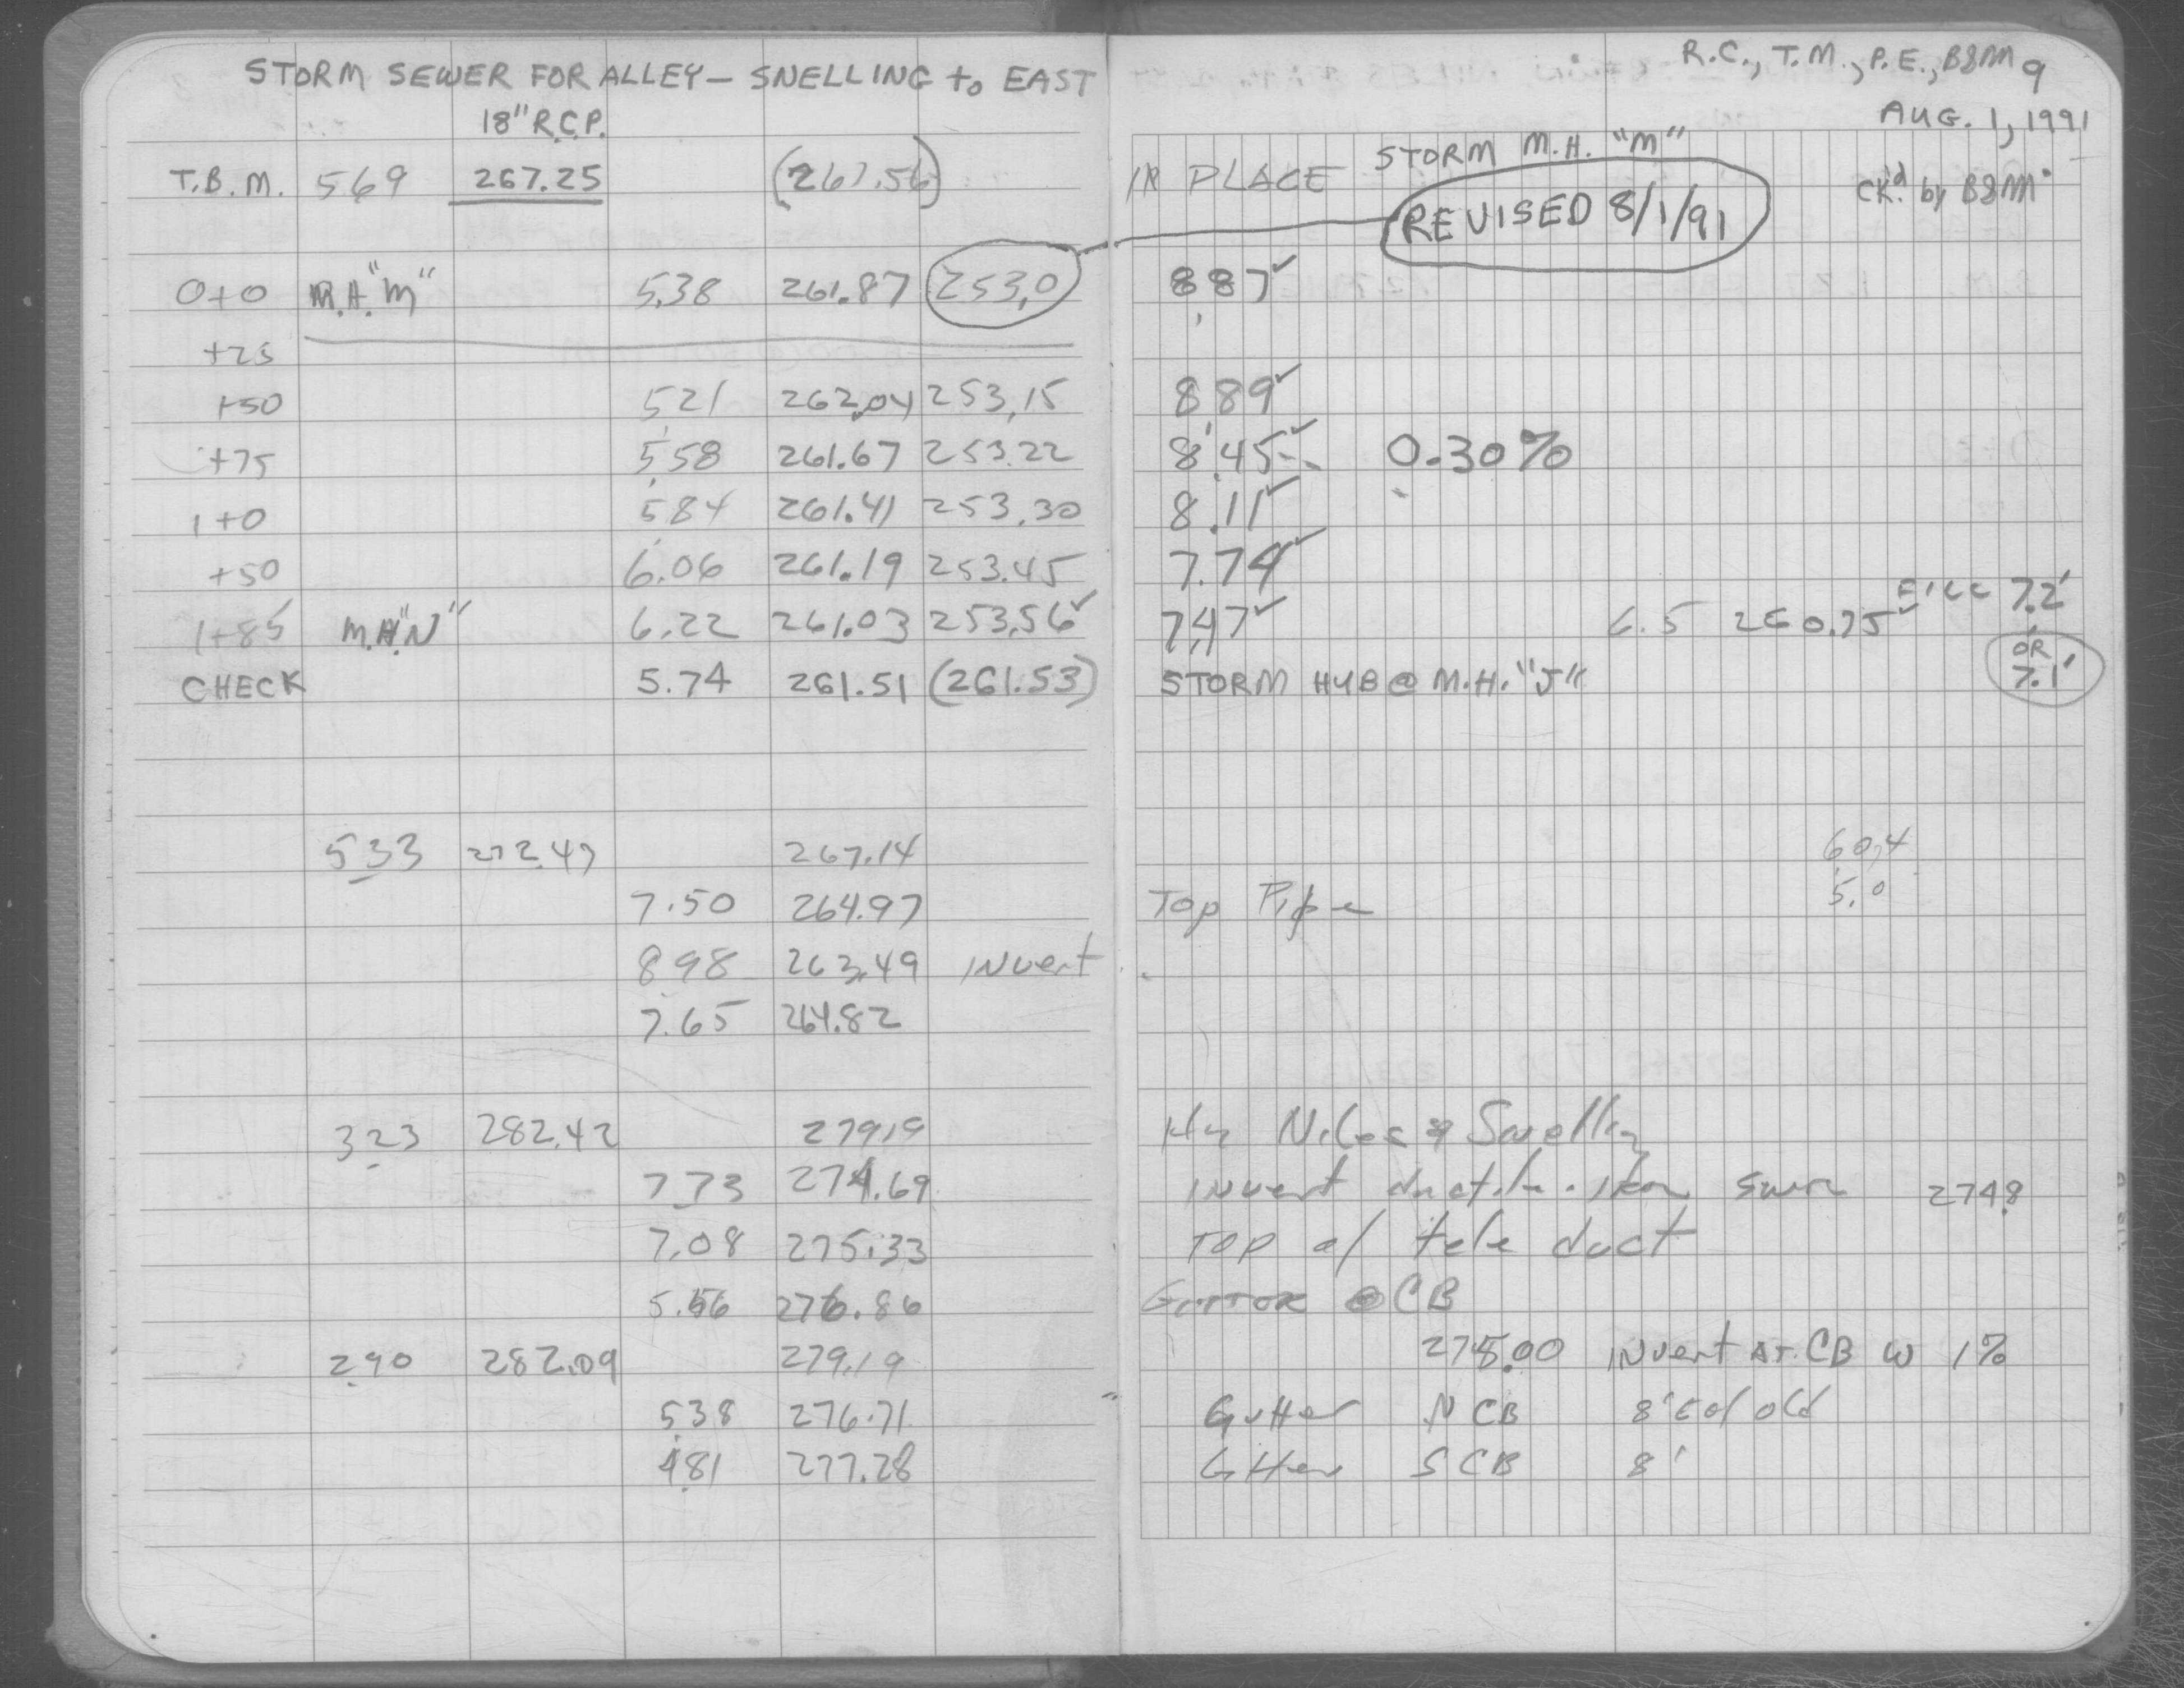 STORM SEWER FOR ALLEY – SNELLING to EAST R.C., T.M., P.E., B&M 9
18" R.C.P. AUG. 1, 1991
T.B.M. 569 267.25 (261.56) IN PLACE STORM M.H. "M" CK'd. by B&M
REVISED 8/1/91
0+0 M.H. "M" 5.38 261.87 253.0 8.87 ✓
+25
+50 5.21 262.04 253.15 8.89 ✓
+75 5.58 261.67 253.22 8.45 ✓ 0.30%
1+0 5.84 261.41 253.30 8.11 ✓
+50 6.06 261.19 253.45 7.74 ✓
1+85 M.H. "N" 6.22 261.03 253.56 ✓ 7.47 ✓ 6.5 260.75 ✓ FILL 7.2'
OR
CHECK 5.74 261.51 (261.53) STORM HUB @ M.H. "J" 7.1'
5.33 272.47 267.14 60.4
7.50 264.97 Top Pipe 5.0
8.98 263.49 INvert
7.65 264.82
3.23 282.42 279.19 Hy Niles & Snelling
7.73 274.69 INvert ductile iron 274.8
7.08 275.33 TOP of tele duct
5.56 276.86 GuTTOR @ CB
2.90 282.09 279.19 275.00 INvert AT CB W 1%
5.38 276.71 Gutter N CB 8' E of old
4.81 277.28 Gutter S CB 8'